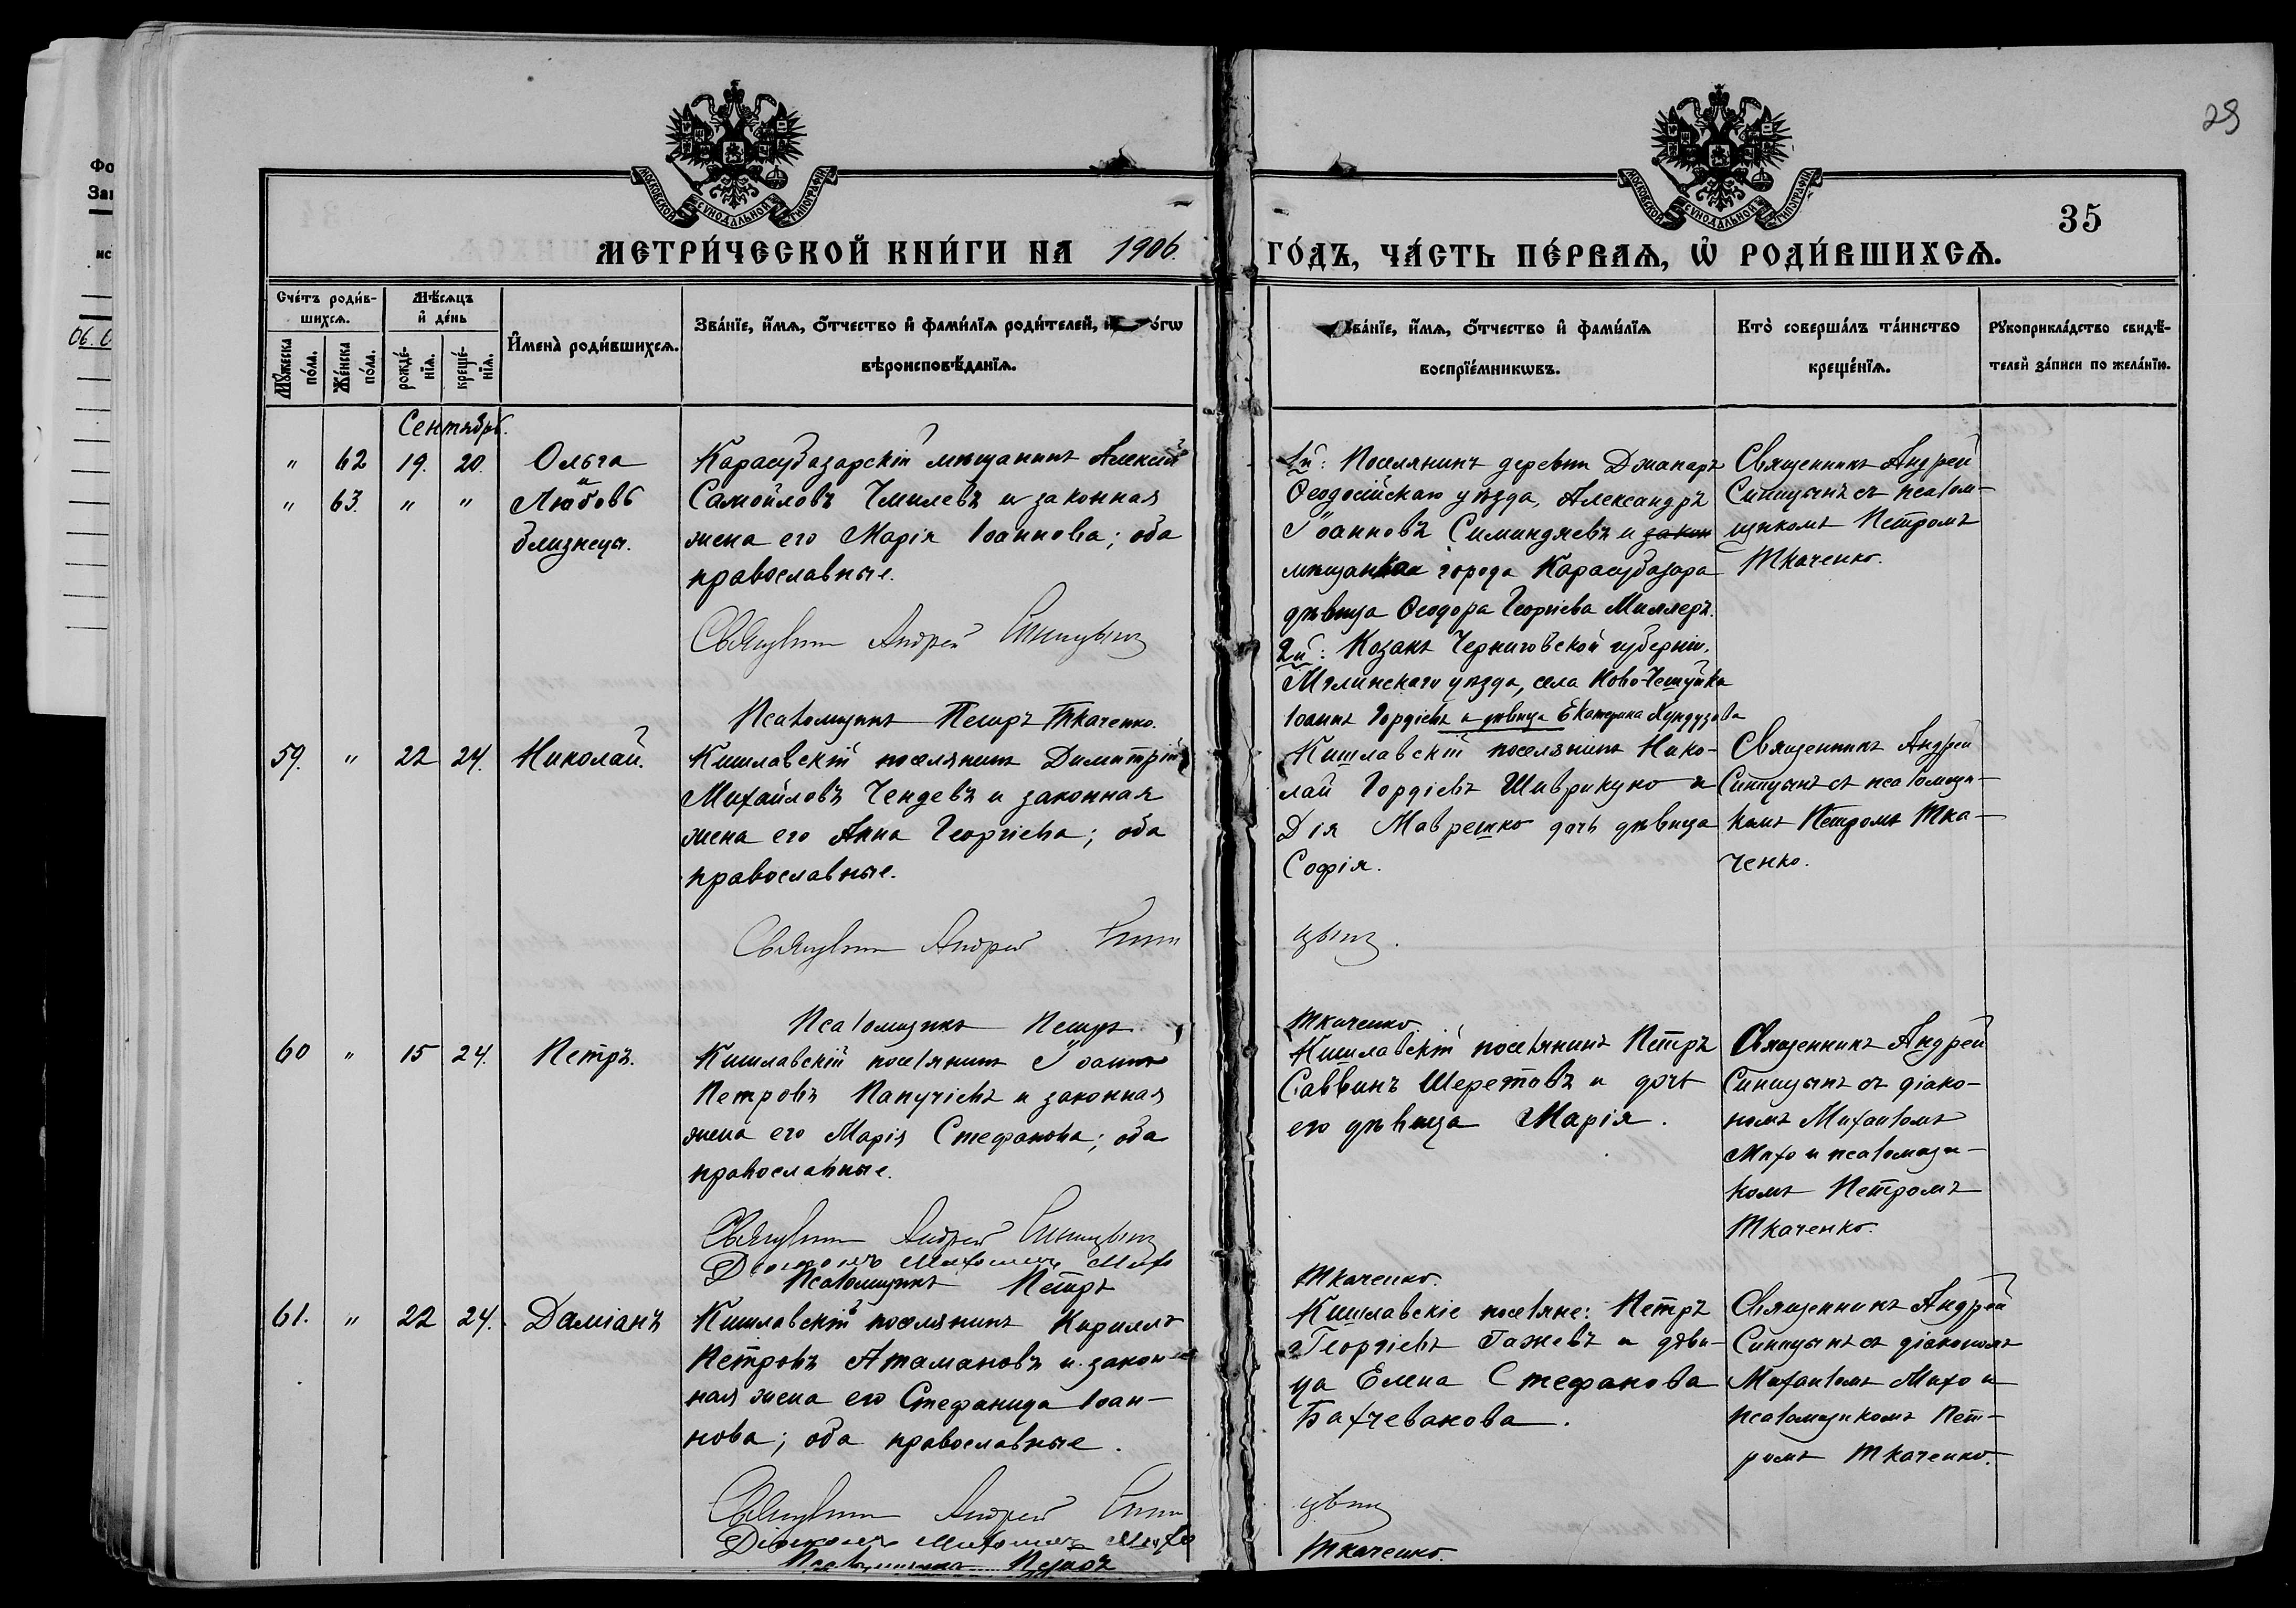 29
35
МОСКОВСКОЙ СѴНОДАЛЬНОЙ ТИПОГРАФІИ
МОСКОВСКОЙ СѴНОДАЛЬНОЙ ТИПОГРАФІИ
МЕТРИ́ЧЕСКОЙ КНИ́ГИ НА 1906. ГО́ДЪ, ЧА́СТЬ ПЕ́РВАѦ, Ѡ҆ РОДИ́ВШИХСѦ.
Сче́тъ роди́в-
шихсѧ.
Мꙋ́жеска по́ла.
Же́нска по́ла.
Мѣ́сѧцъ
и҆ де́нь
рожде́-
нїѧ.
креще́-
нїѧ.
И҆мена̀ роди́вшихсѧ.
Зва́нїе, и҆́мѧ, о҆́тчество и҆ фами́лїѧ роди́телей,
вѣроисповѣ́данїѧ.
Зва́нїе, и҆́мѧ, о҆́тчество и҆ фами́лїѧ
воспрїе́мникѡвъ.
Кто̀ соверша́лъ та́инство
креще́нїѧ.
Рꙋкоприкла́дство свидѣ́-
телей за́писи по жела́нїю.
Сентябрь.
" 62 19. 20. Ольга
и
" 63. " " Любовь
близнецы.
Карасубазарскій мѣщанинъ Алексій
Самойловъ Чмилевъ и законная
жена его Марія Іоаннова; оба
православные.
Священникъ Андрей Синицынъ
Псаломщикъ Петръ Ткаченко.
1й: Поселянинъ деревни Джапаръ
Ѳеодосійскаго уѣзда, Александръ
Іоанновъ Симинджевъ и закон
мѣщанкая города Карасубазара
дѣвица Ѳеодора Георгіева Миллеръ.
2й: Козакъ Черниговской губерніи,
Мглинскаго уѣзда, села Ново-Чешуйка
Іоаннъ Гордіевъ и дѣвица Екатерина Кундузова
Священникъ Андрей
Синицынъ съ псалом-
щикомъ Петромъ
Ткаченко.
59. " 22 24. Николай.
Кишлавскій поселянинъ Димитрій
Михайловъ Чендевъ и законная
жена его Анна Георгіева; оба
православные.
Священникъ Андрей Синицынъ.
Псаломщикъ Петръ Ткаченко.
Кишлавскій поселянинъ Нико-
лай Гордіевъ Шиврикуко и
Дія Маврешко дочь дѣвица
Софія.
Священникъ Андрей
Синицынъ съ псаломщи-
комъ Петромъ Тка-
ченко.
60 " 15 24. Петръ.
Кишлавскій поселянинъ Іоаннъ
Петровъ Папучіевъ и законная
жена его Марія Стефанова; оба
православные.
Священникъ Андрей Синицынъ
Діаконъ Михаилъ Михо
Псаломщикъ Петръ Ткаченко.
Кишлавскій поселянинъ Петръ
Саввинъ Шеретовъ и дочь
его дѣвица Марія.
Священникъ Андрей
Синицынъ съ діако-
номъ Михаиломъ
Михо и псаломщи-
комъ Петромъ
Ткаченко.
61. " 22 24. Даміанъ
Кишлавскій поселянинъ Кириллъ
Петровъ Атамановъ и закон-
ная жена его Стефанида Іоан-
нова; оба православные.
Священникъ Андрей Синицынъ
Діаконъ Михаилъ Михо
Псаломщикъ Петръ Ткаченко.
Кишлавскіе поселяне: Петръ
Георгіевъ Гажевъ и дѣви-
ца Елена Стефанова
Бахчеванова.
Священникъ Андрей
Синицынъ съ діакономъ
Михаиломъ Михо и
псаломщикомъ Пет-
ромъ Ткаченко.